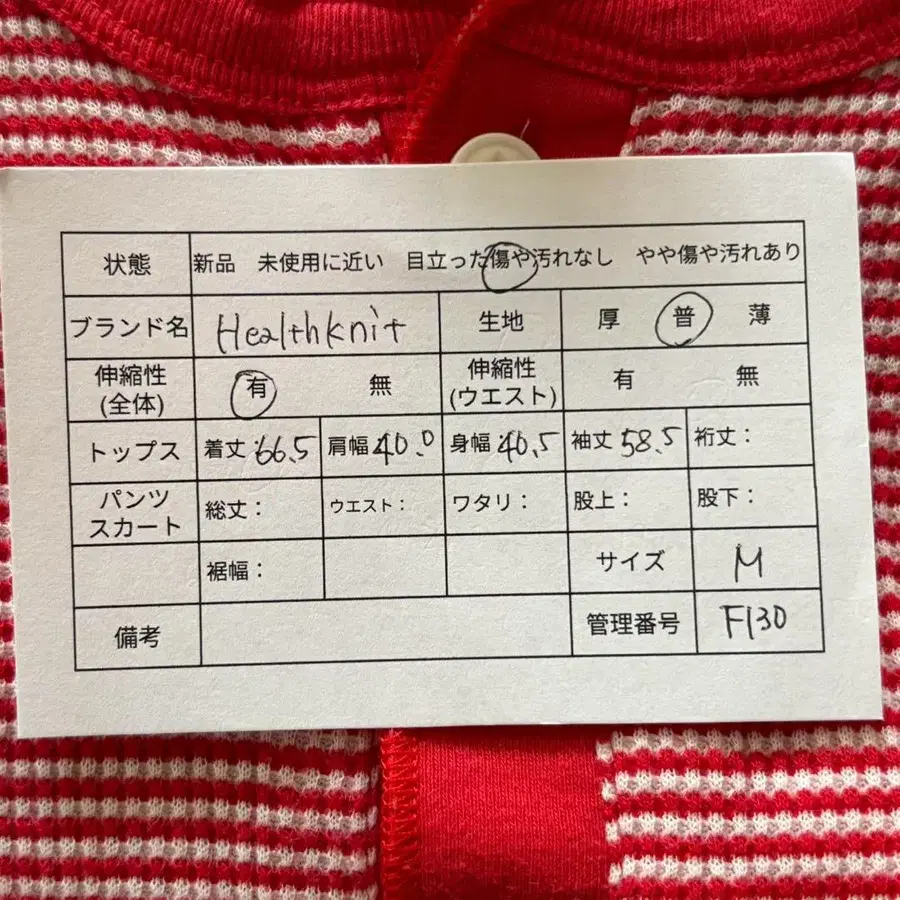 状態 新品 未使用に近い 目立った傷や汚れなし やや傷や汚れあり
ブランド名 Healthknit 生地 厚 普 薄
伸縮性 (全体) 有 無 伸縮性 (ウエスト) 有 無
トップス 着丈:66.5 肩幅40.0 身幅:40.5 袖丈58.5 裄丈:
パンツ スカート 総丈: ウエスト: ワタリ: 股上: 股下:
裾幅: サイズ M
備考 管理番号 F130